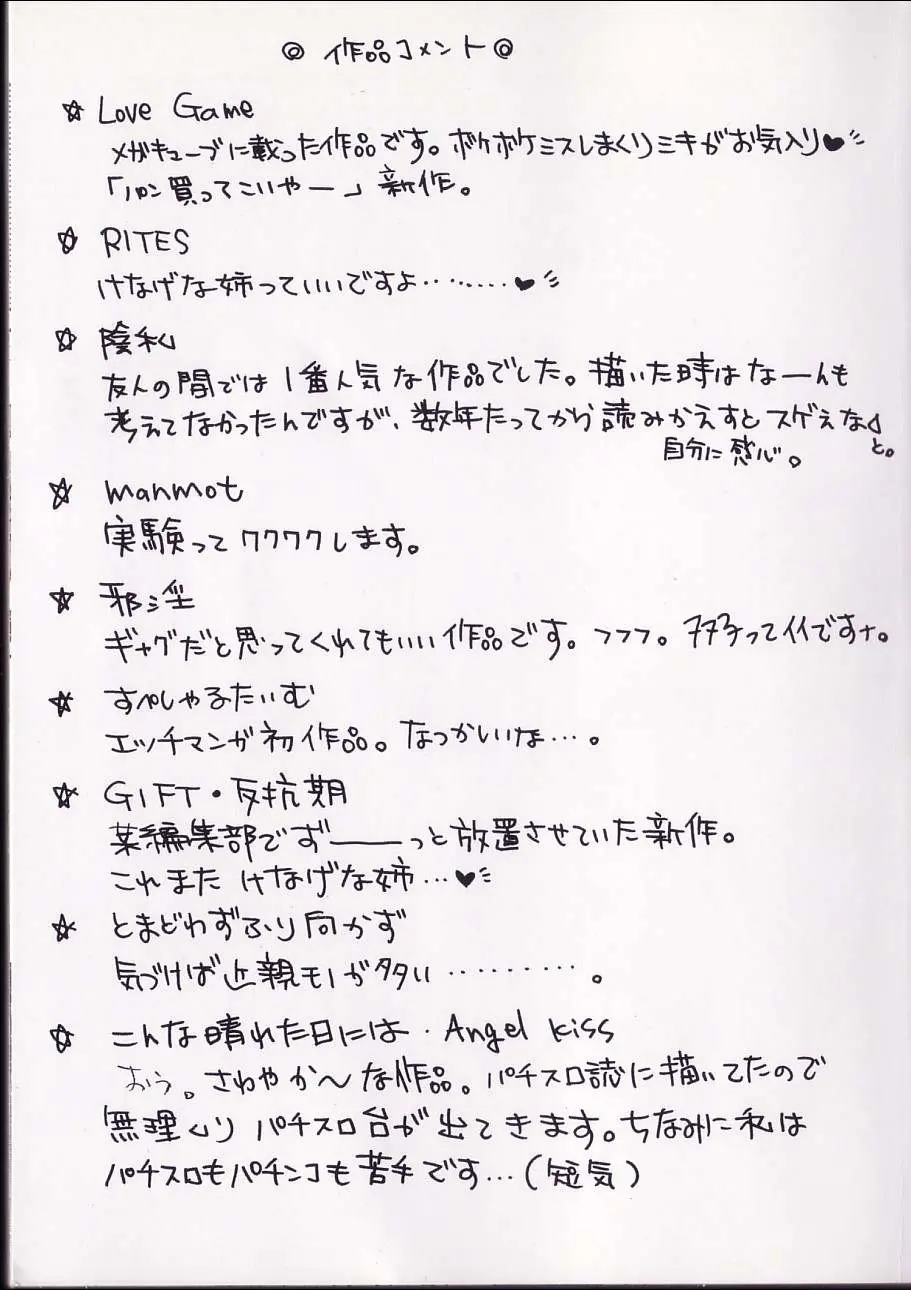 ◎ 作品コメント◎
☆ Love Game
メガキューブに載った作品です。ボケボケミスしまくりミキがお気入り♥
「パン買ってこいやー」新作。
☆ RITES
けなげな姉っていいですよ‥‥‥‥♥
☆ 陰私
友人の間では1番人気な作品でした。描いた時はなーんも
考えてなかったんですが、数年たってから読みかえすとスゲぇなぁ
と。
自分に感心。
☆ manmot
実験ってワクワクします。
☆ 邪淫
ギャグだと思ってくれてもいい作品です。フフフ。ってイイですナ。
☆ すぺしゃるたいむ
エッチマンガ初作品。なつかいいな…。
☆ GIFT・反抗期
某編集部でずーーっと放置させていた新作。
これまた けなげな姉…♥
☆ とまどわずふり向かず
気づけば近親モノが多い ‥‥‥‥‥。
☆ こんな晴れた日には・Angel kiss
おう。さわやか〜な作品。パチスロ誌に描いてたので
無理くり パチスロ台が出てきます。ちなみに私は
パチスロもパチンコも苦手です…(短気)